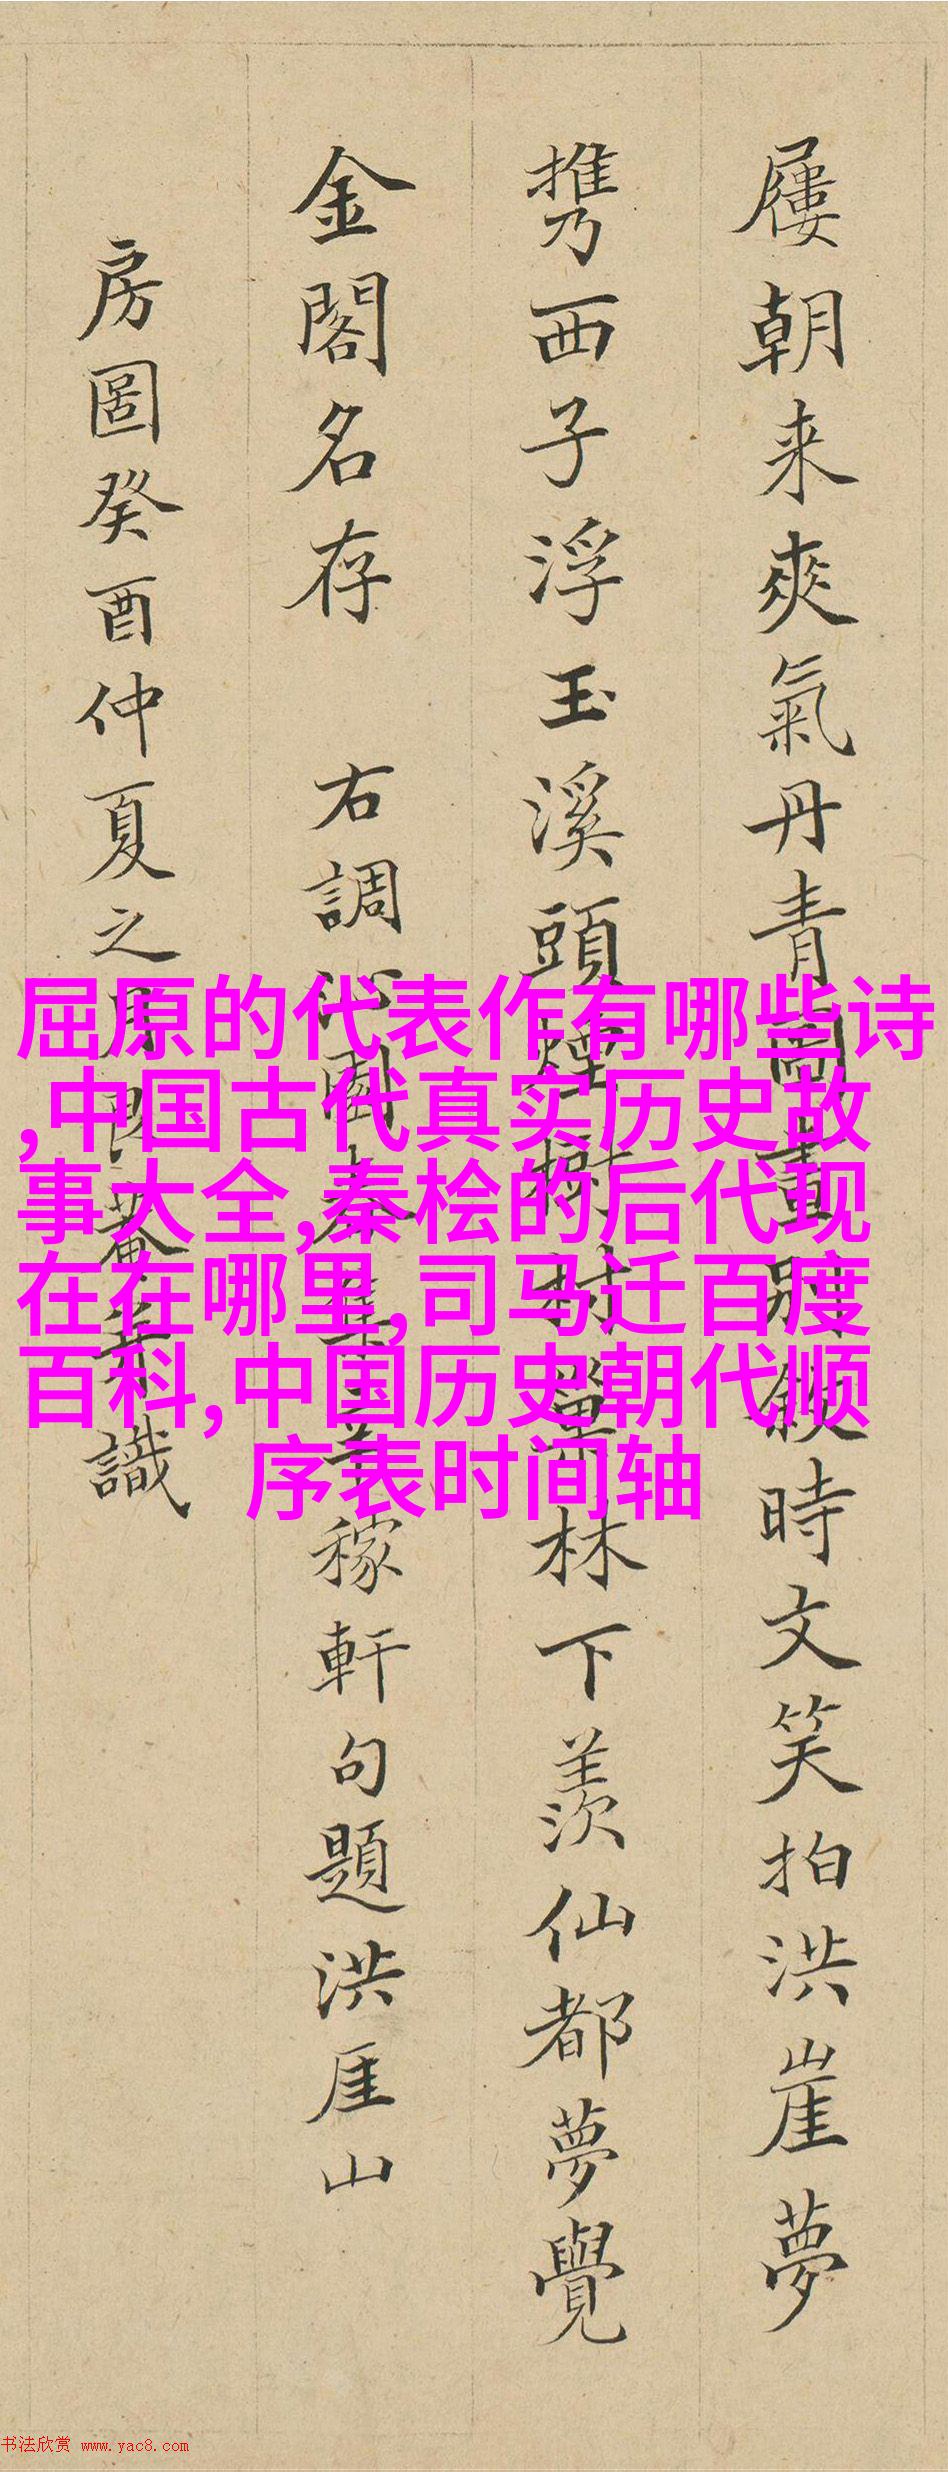 屢朝来爽氣丹青圖畫別時文笑拍洪崖夢
擕西子浮玉溪頭煙樹村林下羨仙都夢覺
金閣名存 右調沁園春集辛稼軒句題洪厓山
房圖癸酉仲夏之月菴識
屈原的代表作有哪些诗
,中国古代真实历史故
事大全,秦桧的后代现
在在哪里,司马迁百度
百科,中国历史朝代顺
序表时间轴
书法欣赏 www.yac8.com